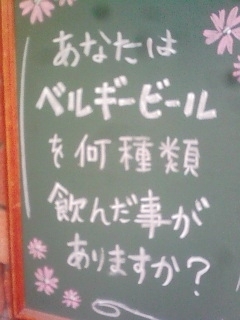 あなたは
ベルギービール
を何種類
飲んだ事が
ありますか?